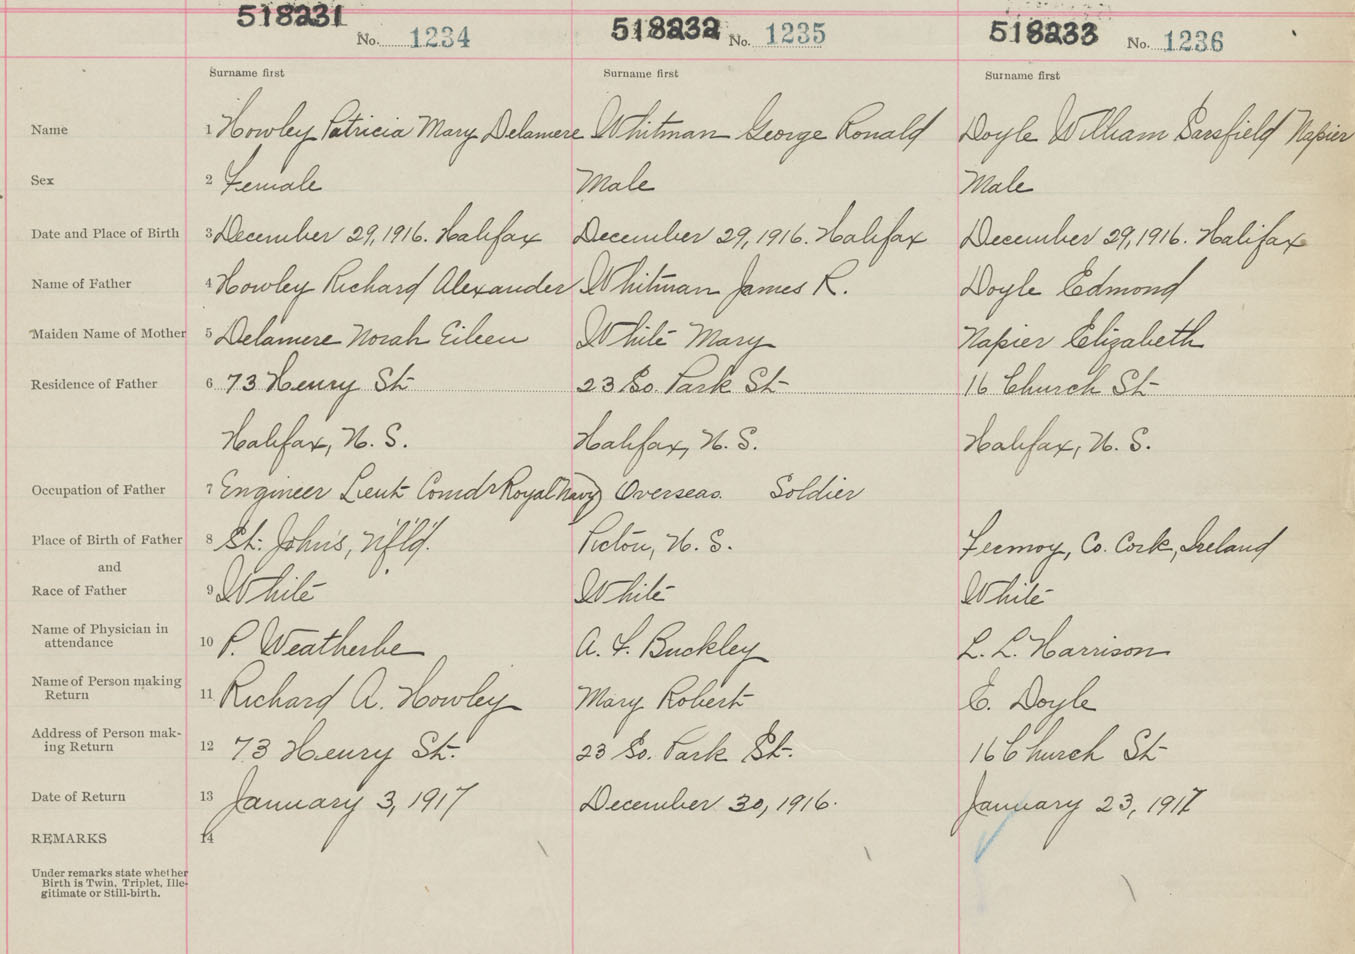 518231 518232 518233
No. 1234 No. 1235 No. 1236
Surname first Surname first Surname first
Name 1 Howley Patricia Mary Delamere Whitman George Ronald Doyle William Sarsfield Napier
Sex 2 Female Male Male
Date and Place of Birth 3 December 29, 1916. Halifax December 29, 1916. Halifax December 29, 1916. Halifax
Name of Father 4 Howley Richard Alexander Whitman James R. Doyle Edmond
Maiden Name of Mother 5 Delamere Norah Eileen White Mary Napier Elizabeth
Residence of Father 6 73 Henry St 23 So. Park St 16 Church St
Halifax, N. S. Halifax, N. S. Halifax, N. S.
Occupation of Father 7 Engineer Lieut Comdr Royal Navy) Overseas. Soldier
Place of Birth of Father 8 St. John's, N'f'l'd'. Pictou, N. S. Fermoy, Co. Cork, Ireland
and
Race of Father 9 White White White
Name of Physician in
attendance 10 P. Weatherbe A. F. Buckley L. L. Harrison
Name of Person making
Return 11 Richard A. Howley Mary Robert E. Doyle
Address of Person mak-
ing Return 12 73 Henry St. 23 So. Park St. 16 Church St
Date of Return 13 January 3, 1917 December 30, 1916. January 23, 1917
REMARKS 14
Under remarks state whether
Birth is Twin, Triplet, Ille-
gitimate or Still-birth.